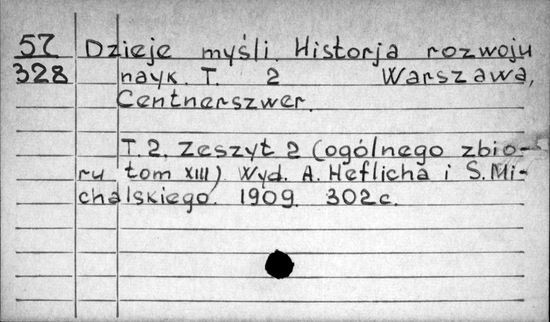 57 Dzieje myśli. Historja rozwoju
328 nayk. T. 2 Warszawa,
Centnerszwer.
T. 2. Zeszyt 2 (ogólnego zbio-
ru tom XIII) Wyd. A. Heflicha i S. Mi-
chalskiego. 1909. 302 c.